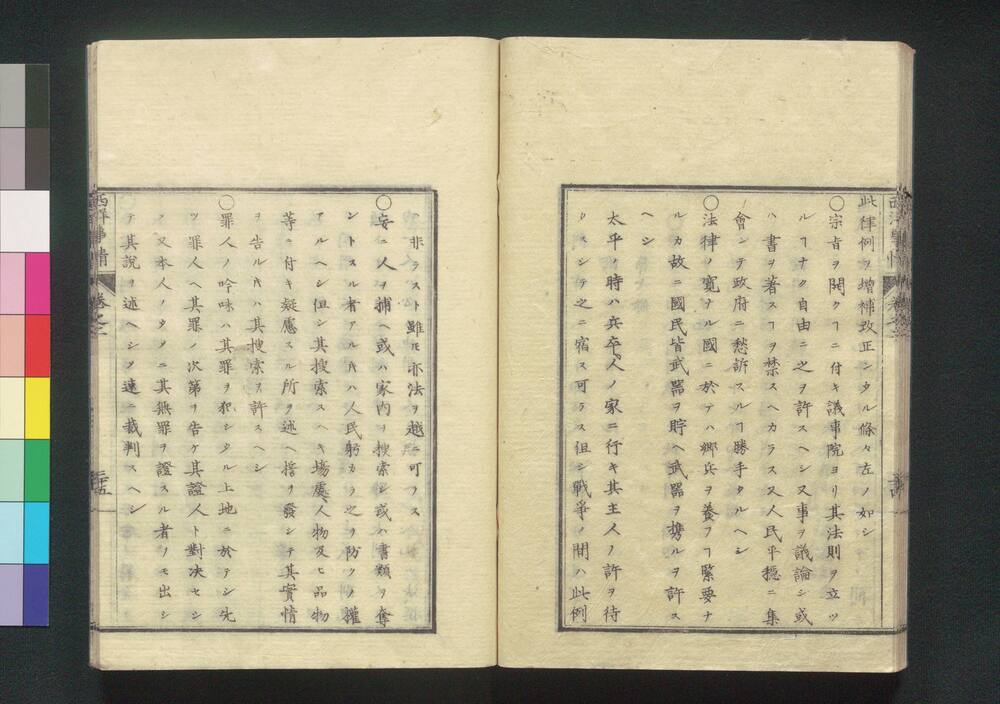 西洋事情
卷之二
此律例ヲ增補改正シタル條々左ノ如シ
〇宗旨ヲ開クヿニ付キ議事院ヨリ其法則ヲ立ツ
ルヿナク自由ニ之ヲ許スヘシ又事ヲ議論シ或
ハ書ヲ著スヿヲ禁スヘカラス又人民平穩ニ集
會シテ政府ニ愁訴スルヿ勝手タルヘシ
〇法律ノ寬ナル國ニ於テハ鄉兵ヲ養フヿ緊要ナ
ルカ故ニ國民皆武器ヲ貯ヘ武器ヲ携ルヲ許ス
ヘシ
太平ノ時ハ兵卒人ノ家ニ行キ其主人ノ許ヲ待
タスシテ之ニ宿ス可ラス但シ戰爭ノ間ハ此例
非ラスト雖𪜈亦法ヲ越ユ可ラス
〇妄ニ人ヲ捕ヘ或ハ家內ヲ搜索シ或ハ書類ヲ奪
ントスル者アル𪜈ハ人民躬カラ之ヲ防クノ權
アルヘシ但シ其搜索スヘキ場處人物及ヒ品物
等ニ付キ疑慮スル所ヲ述ヘ誓ヲ發シテ其實情
ヲ告ル𪜈ハ其搜索ヲ許スヘシ
〇罪人ノ吟味ハ其罪ヲ犯シタル土地ニ於テシ先
ツ罪人ヘ其罪ノ次第ヲ告ケ其證人ト對決セシ
メ又本人ノタメニ其無罪ヲ證スル者ヲモ出シ
テ其說ヲ述ヘシメ速ニ裁判スヘシ
西洋事情
卷之二
三十五